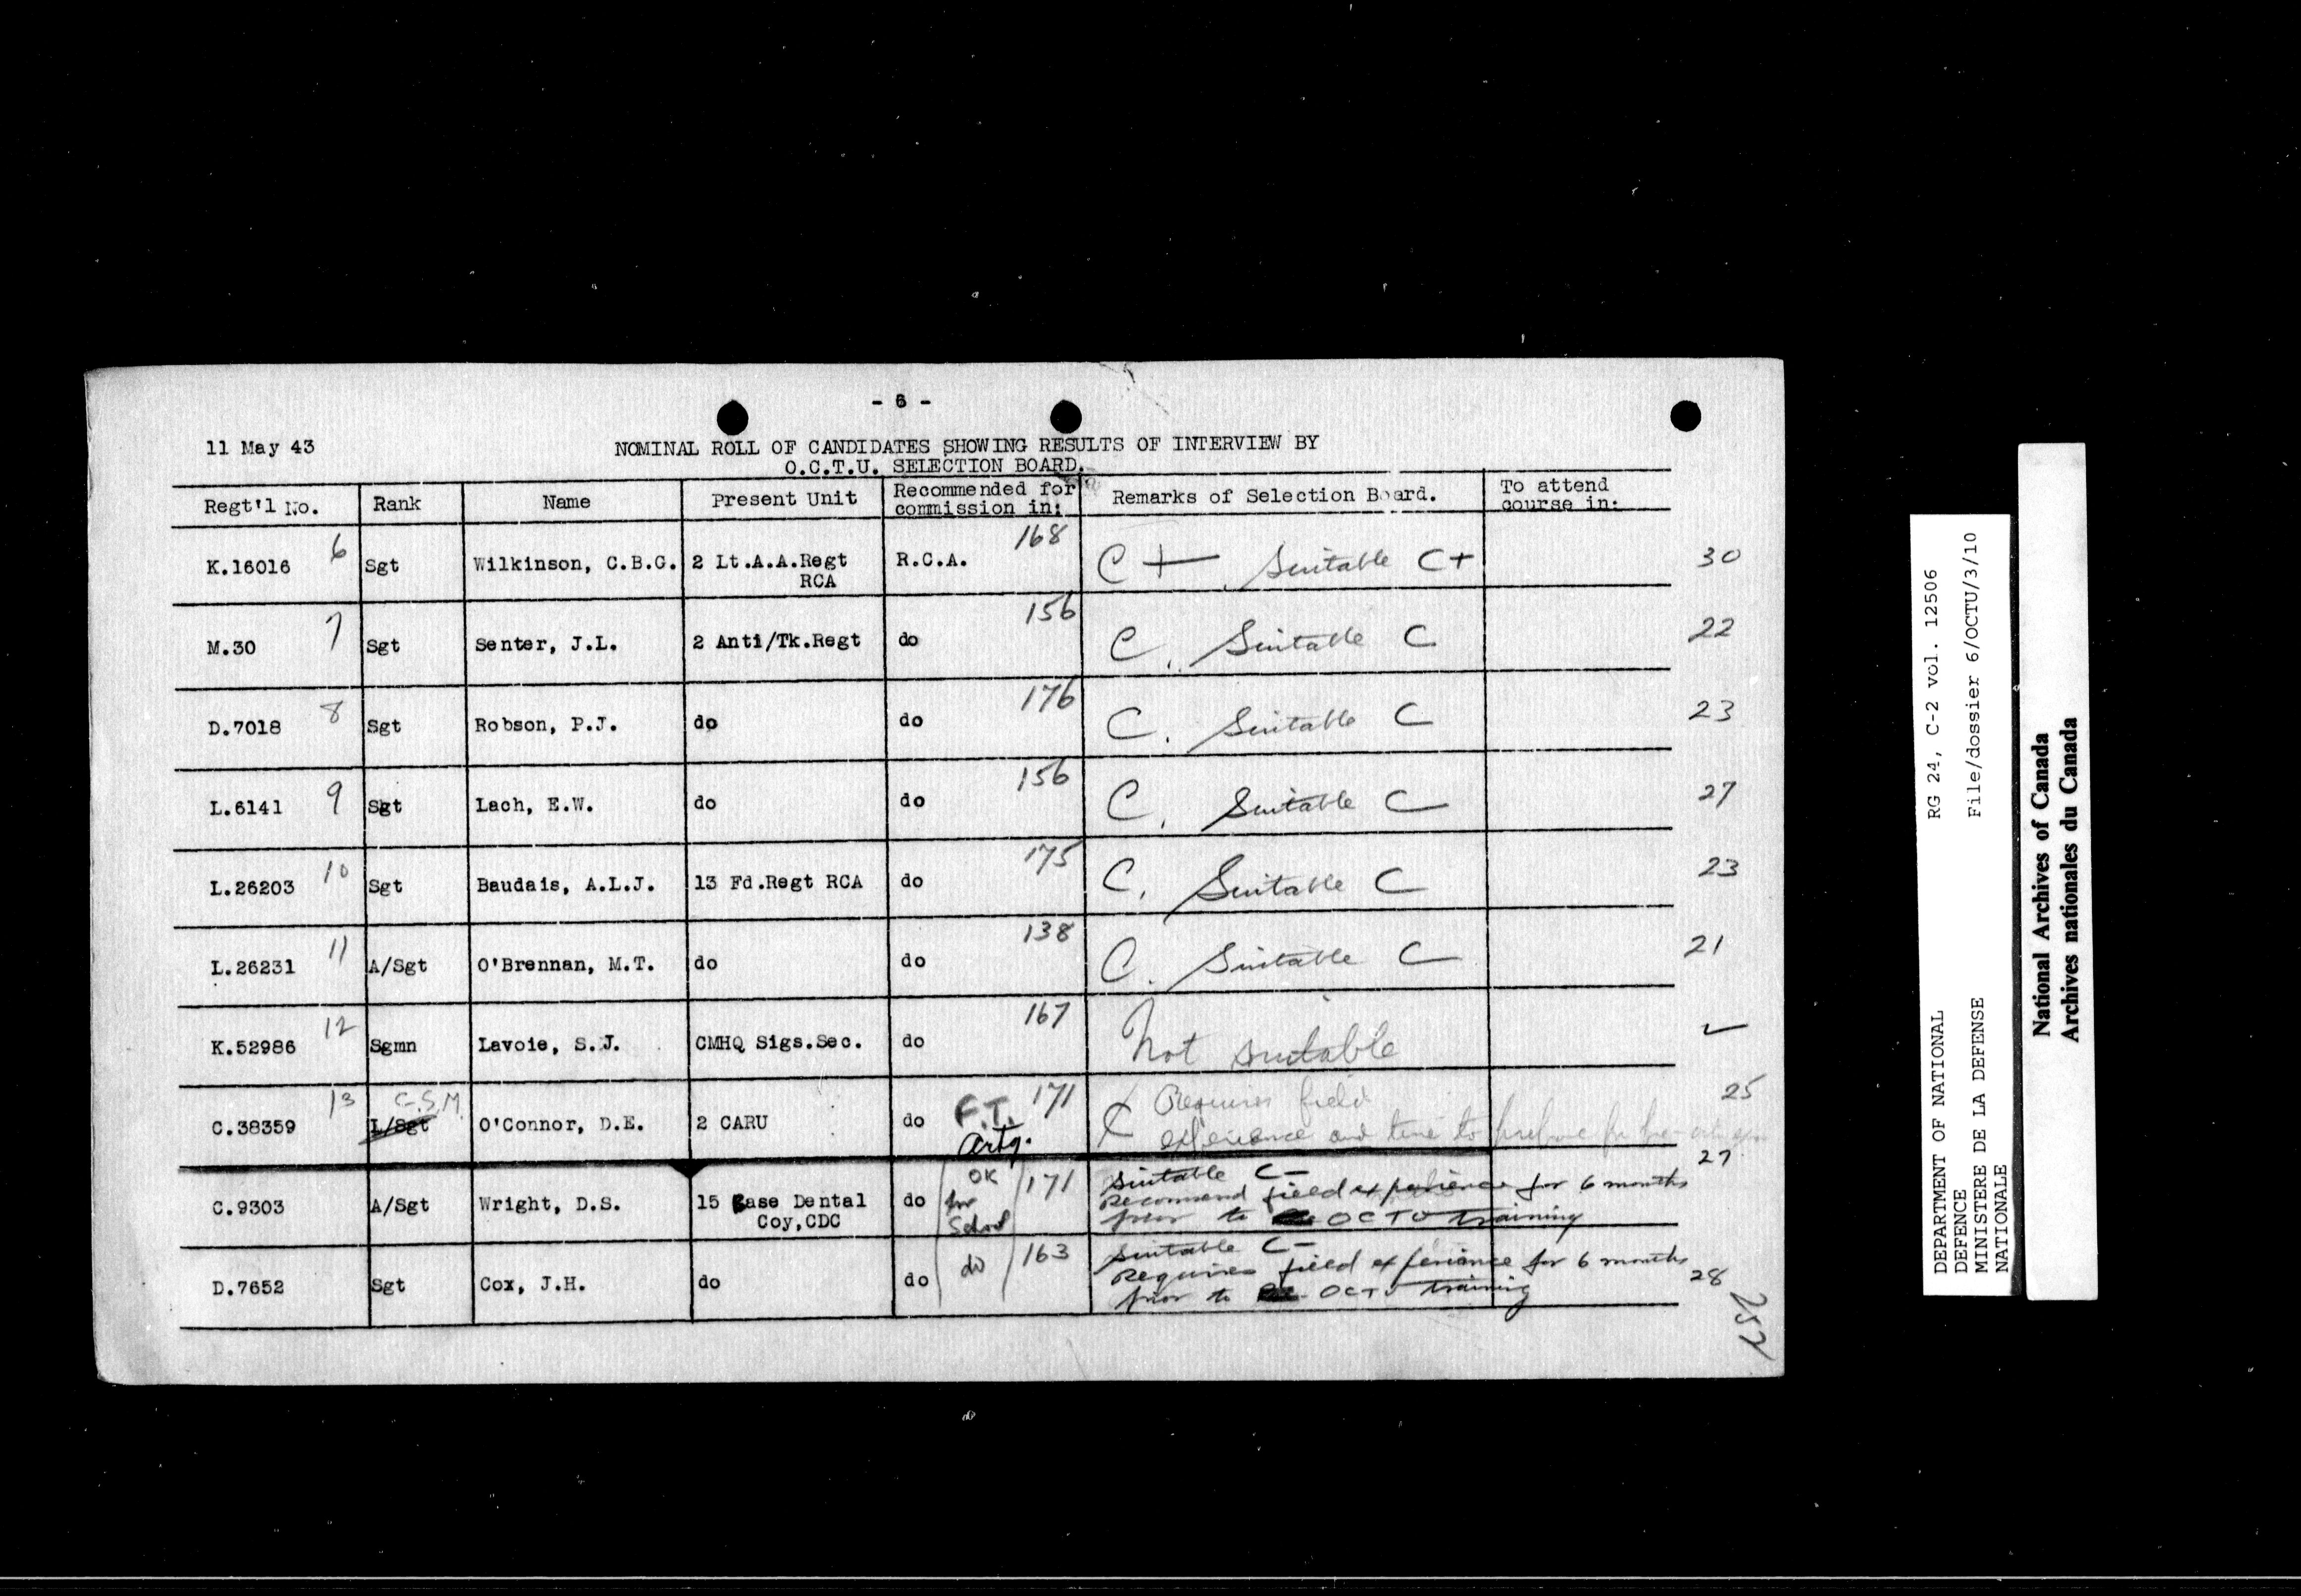 - 6 -
11 May 43
NOMINAL ROLL OF CANDIDATES SHOWING RESULTS OF INTERVIEW BY
O.C.T.U. SELECTION BOARD.
Regt'l No. Rank Name Present Unit Recommended for commission in: Remarks of Selection Board. To attend course in:
K.16016 6 Sgt Wilkinson, C.B.G. 2 Lt.A.A.Regt RCA R.C.A. 168 C+ Suitable C+ 30
M.30 7 Sgt Senter, J.L. 2 Anti/Tk.Regt do 156 C. Suitable C 22
D.7018 8 Sgt Robson, P.J. do do 176 C. Suitable C 23
L.6141 9 Sgt Lach, E.W. do do 156 C. Suitable C 27
L.26203 10 Sgt Baudais, A.L.J. 13 Fd.Regt RCA do 175 C. Suitable C 23
L.26231 11 A/Sgt O'Brennan, M.T. do do 138 C. Suitable C 21
K.52986 12 Sgmn Lavoie, S.J. CMHQ Sigs.Sec. do 167 Not suitable
C.38359 13 C.S.M. L/Sgt O'Connor, D.E. 2 CARU do F.T. Arty. 171 C Requires field 25
experience and time to prepare for
C.9303 A/Sgt Wright, D.S. 15 Base Dental Coy,CDC do OK for School 171 Suitable C- 27
Recommend field experience for 6 months
prior to OCTU training
D.7652 Sgt Cox, J.H. do do do 163 Suitable C-
Requires field experience for 6 months 28
prior to OCTU training
257
DEPARTMENT OF NATIONAL RG 24, C-2 vol. 12506
DEFENCE
MINISTERE DE LA DEFENSE File/dossier 6/OCTU/3/10
NATIONALE
National Archives of Canada
Archives nationales du Canada